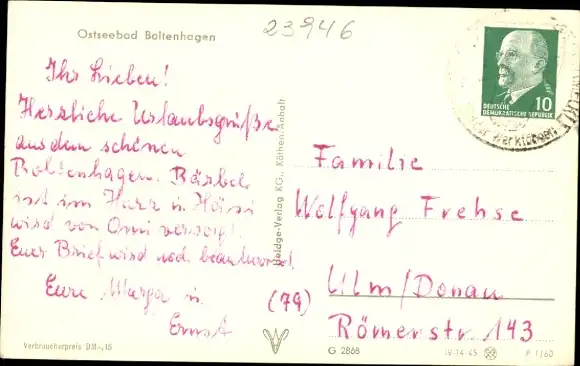 23946
Ostseebad Boltenhagen
Ihr Lieben!
Herzliche Urlaubsgrüße
aus dem schönen
Boltenhagen. Bärbel
ist im Harz u.
wird von Omi versorgt.
Euer Brief wird noch beantwortet.
Eure Marga u.
Ernst
Verbraucherpreis DM -,15
KG., Köthen/Anhalt
DEUTSCHE
DEMOKRATISCHE REPUBLIK
10
Familie
Wolfgang Frehse
(79) Ulm/Donau
Römerstr. 143
G 2868
IV-14-45
P 1/60